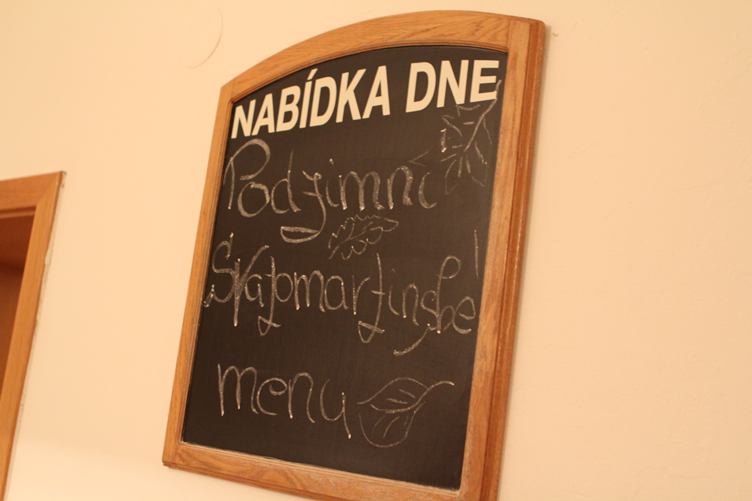 NABÍDKA DNE
Podzimní
Svatomartinské
menu